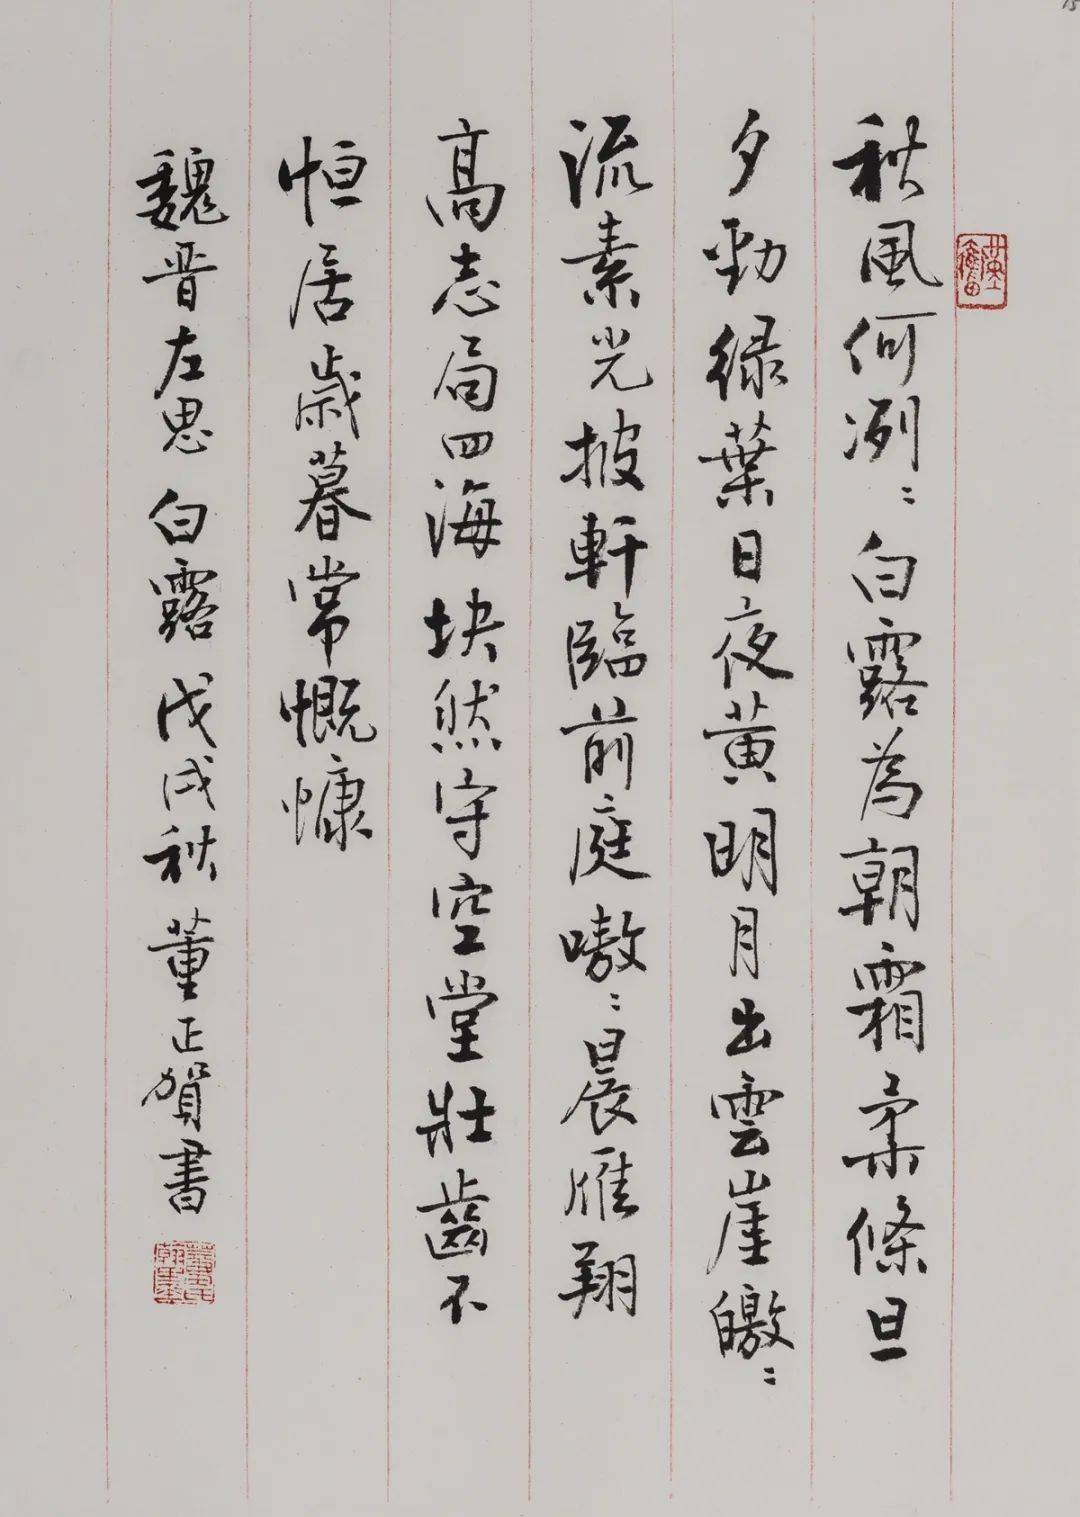 秋風何冽〻白露為朝霜柔條旦
夕勁綠葉日夜黃明月出雲崖皦〻
流素光披軒臨前庭嗷〻晨雁翔
高志局四海块然守空堂壯齒不
恒居歲暮常慨慷
魏晋左思 白露 戊戌秋 董正賀書